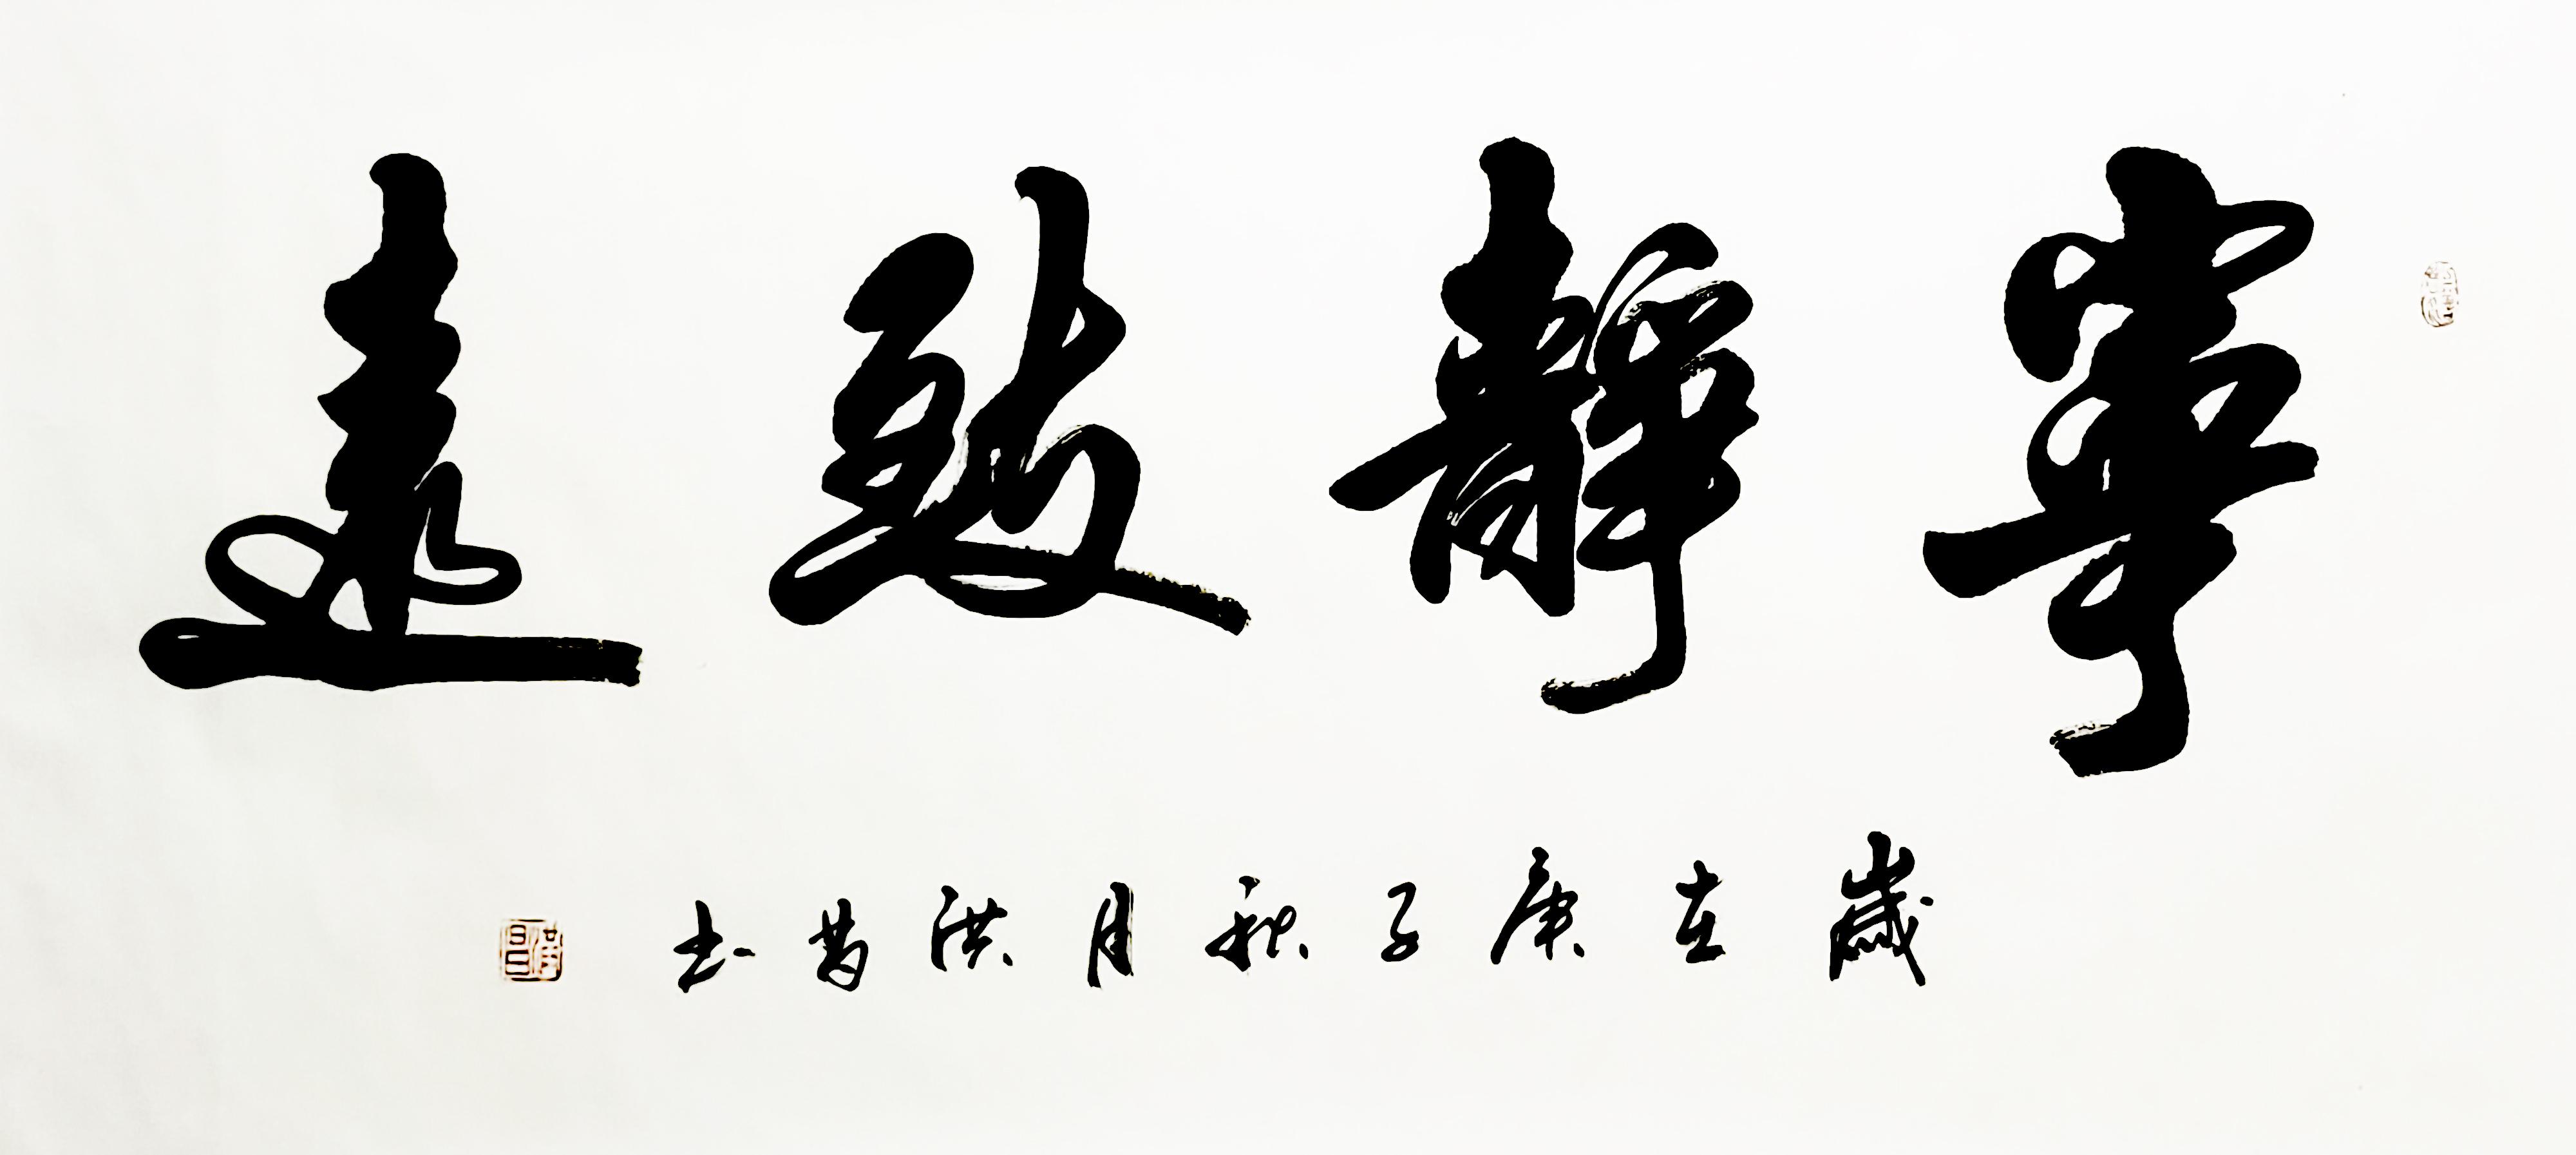 寧靜致遠
歲在庚子秋月洪昌书